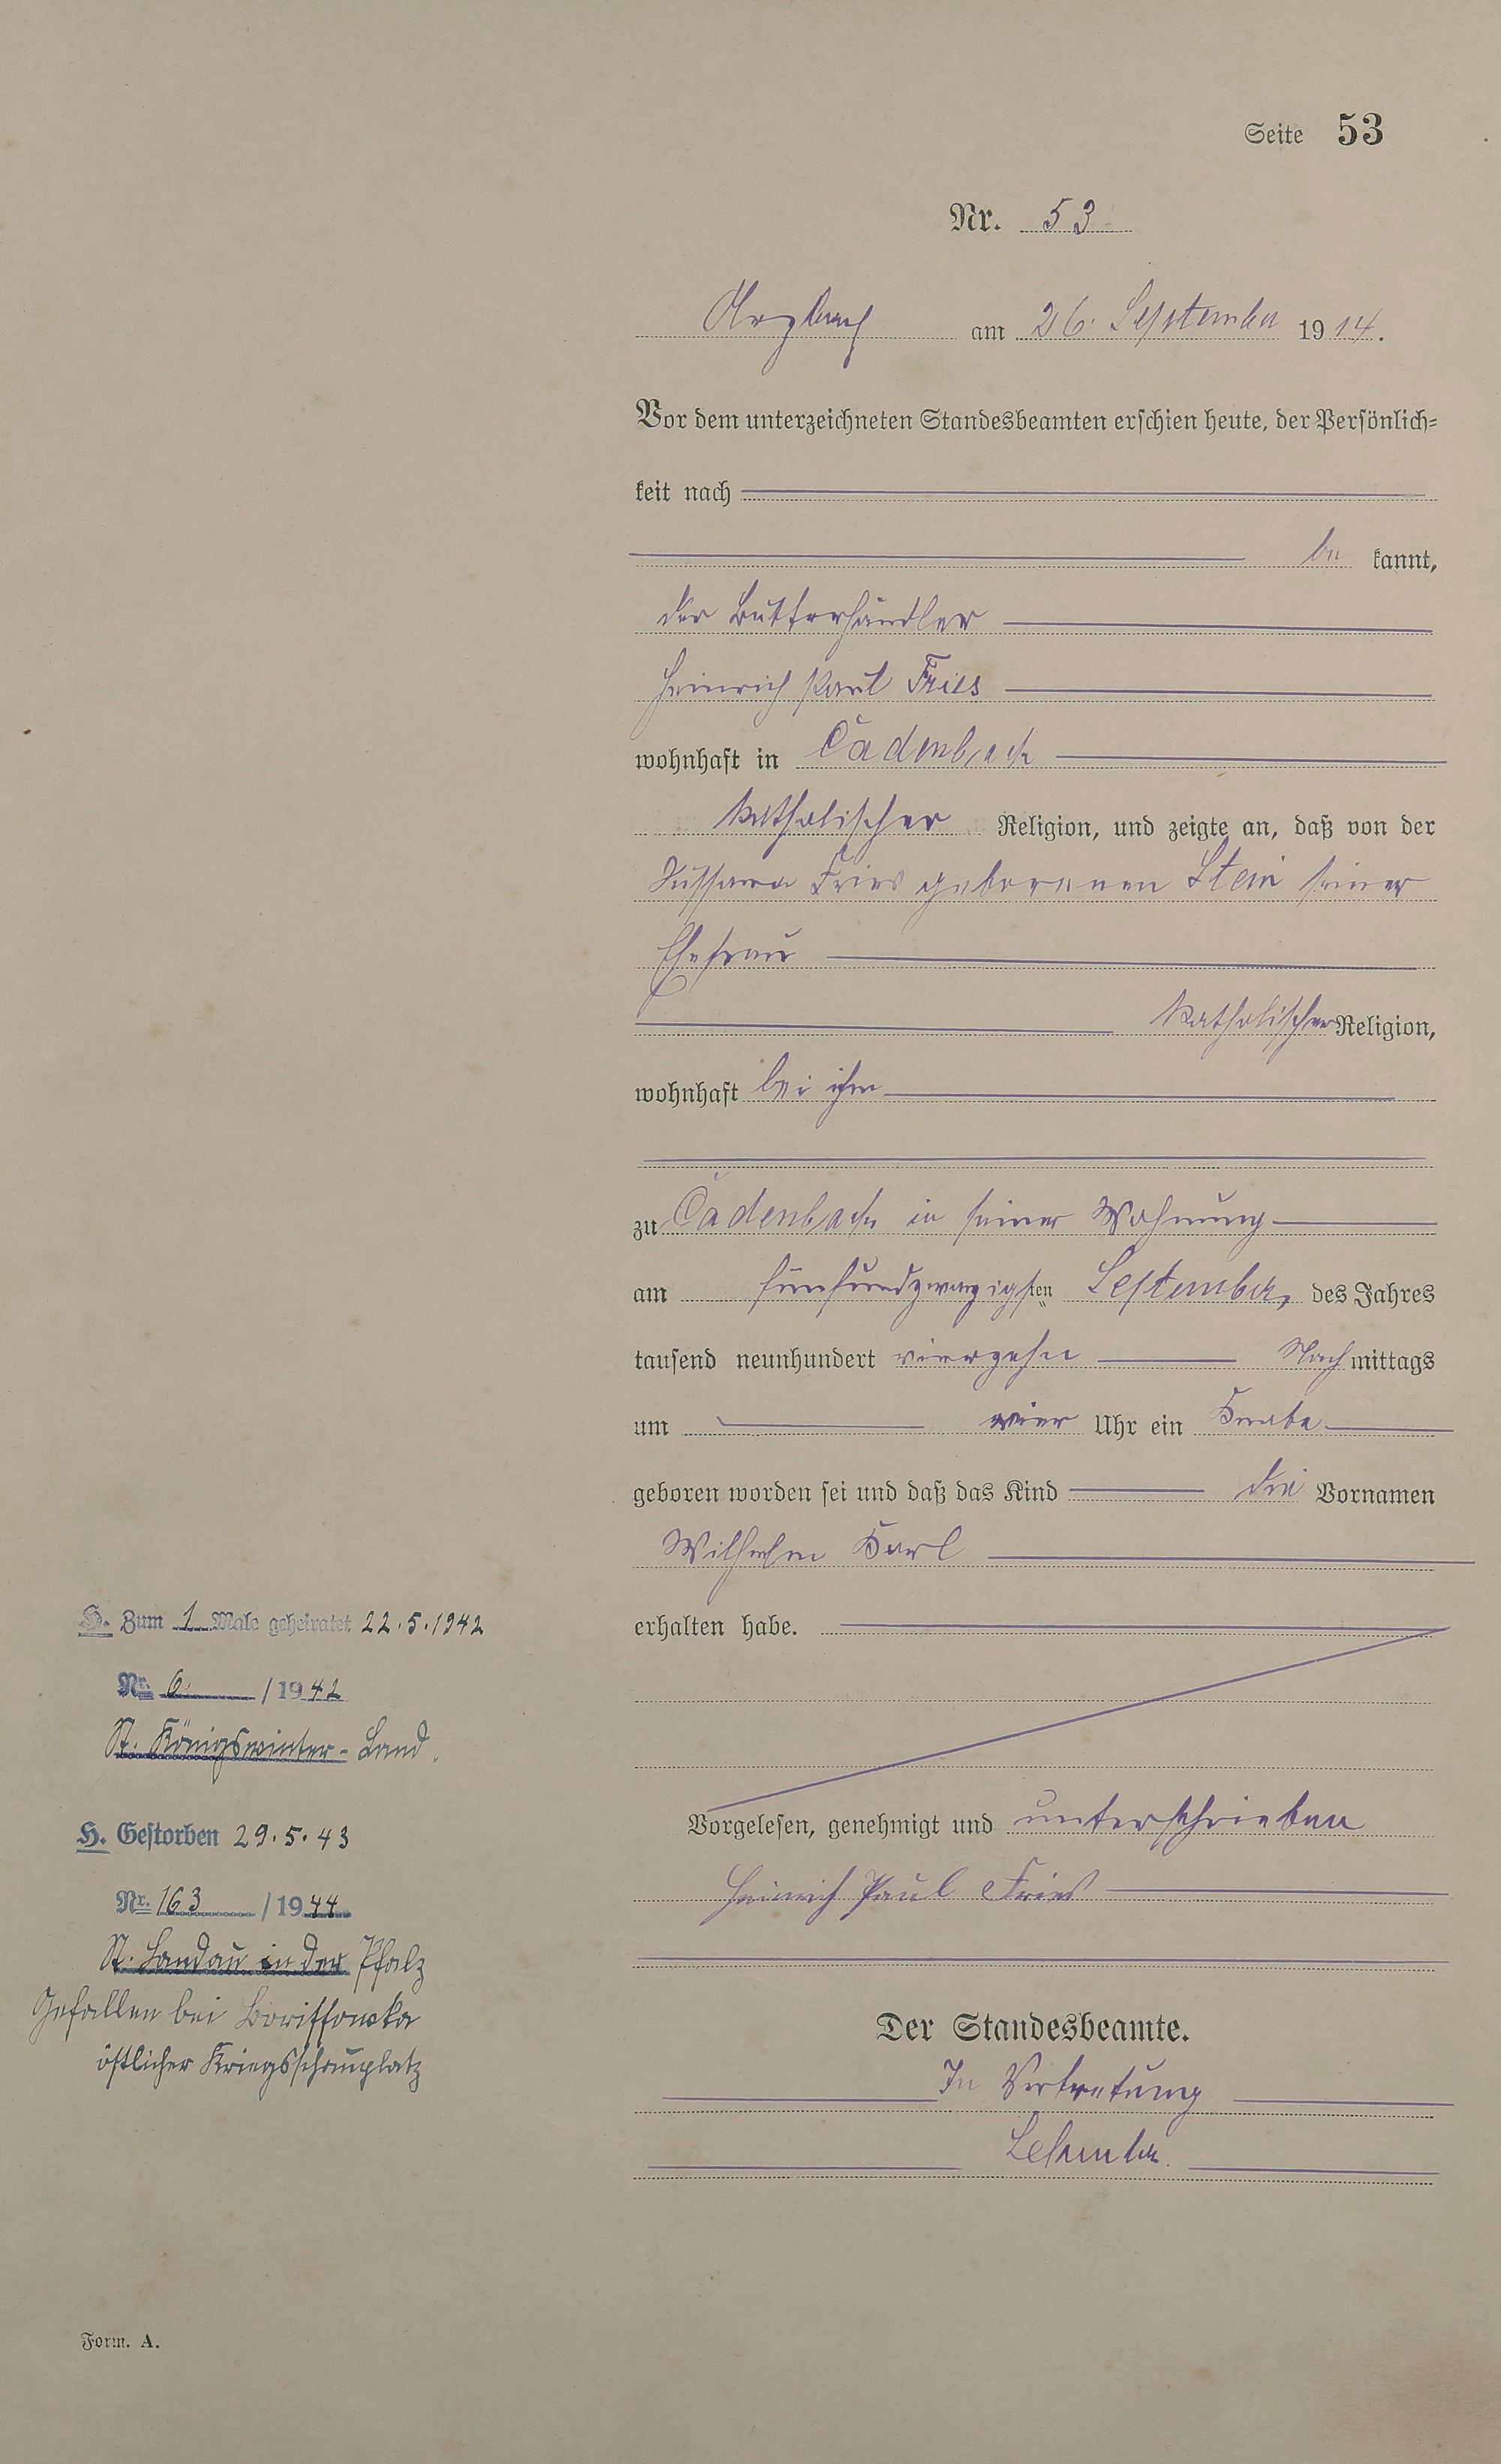 Seite 53
Nr. 53
Arzbach am 26. September 1914.
Vor dem unterzeichneten Standesbeamten erschien heute, der Persönlich-
keit nach
be kannt,
der Butterhändler
Heinrich Paul Fries
wohnhaft in Cadenbach
katholischer Religion, und zeigte an, daß von der
Fries geborenen Stein seiner
Ehefrau
katholischer Religion,
wohnhaft bei ihm
zu Cadenbach in seiner Wohnung
am fünfundzwanzigsten September, des Jahres
tausend neunhundert vierzehn Nachmittags
um vier Uhr ein Knabe
geboren worden sei und daß das Kind die Vornamen
Wilhelm Karl
erhalten habe.
Vorgelesen, genehmigt und unterschrieben
Heinrich Paul Fries
Der Standesbeamte.
In Vertretung
H. Zum 1 Male geheiratet 22.5.1942
Nr. 6. /1942
St. Königswinter-Land.
H. Gestorben 29.5.43
Nr. 163 /1944
St. Landau in der Pfalz
Gefallen bei Borissowka
östlicher Kriegsschauplatz
Form. A.